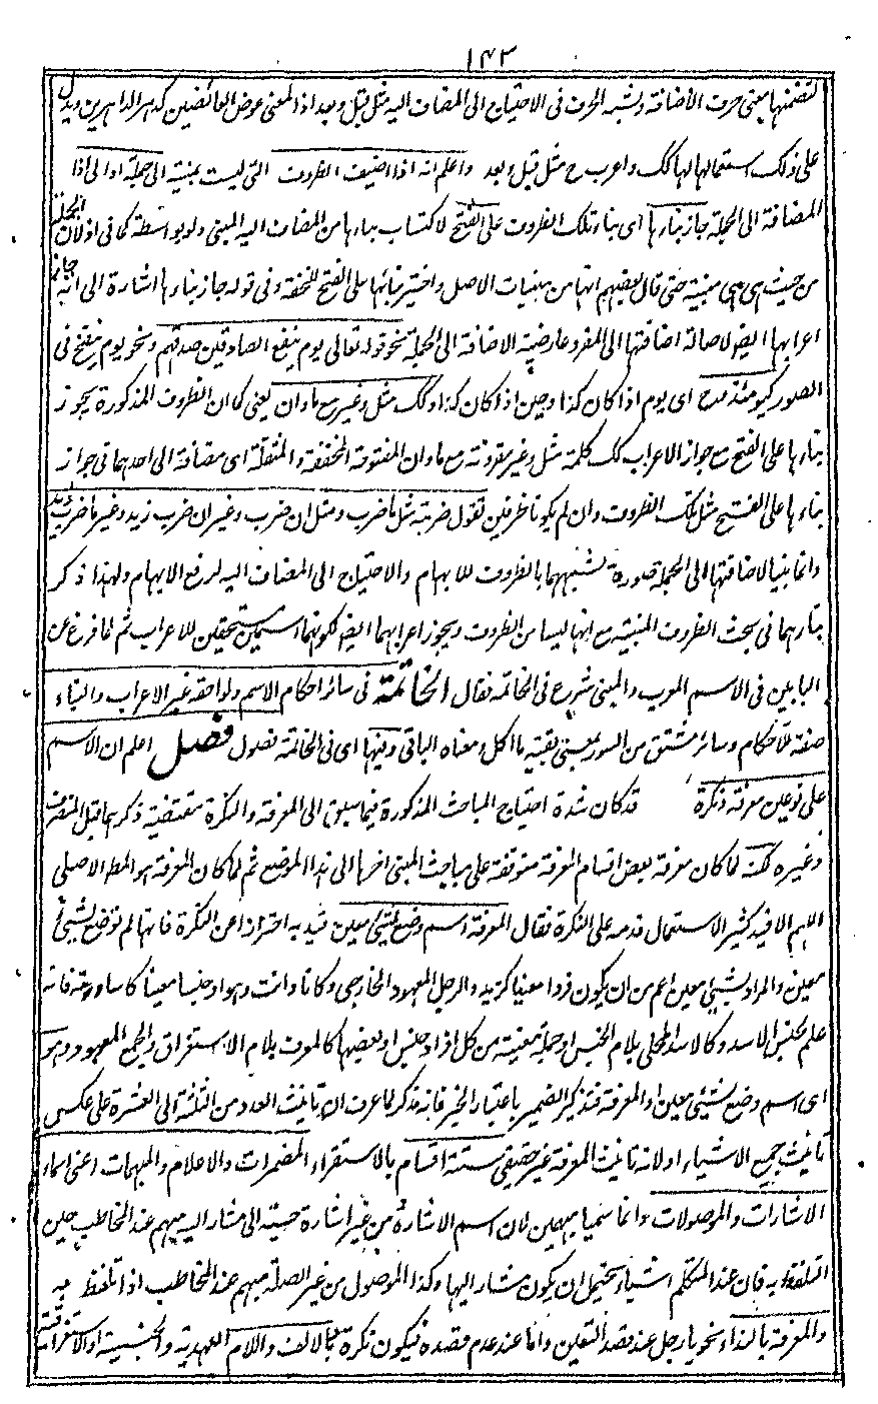 ۱۴۳
لتضمنها معنى حرف الاضافة ولشبه الحرف فى الاحتياج الى المضاف اليه مثل قبل وبعد اذ المعنى عوض العائضين كدهر الداهرين ويدل
على ذلك استعمالها لها كك واعرب ح مثل قبل وبعد واعلم انه اذا اضيف الظروف التى ليست بمبنية الى جملة او الى اذا
المضافة الى الجملة جاز بناءها اى بناء تلك الظروف على الفتح لاكتساب بناءها من المضاف اليه المبنى ولو بواسطة كما فى اذ لان الجملة
من حيث هى هى مبنية حتى قال بعضهم انها من مبنيات الاصل واختير بنائها على الفتح للخفة وفى قوله جاز بناءها اشارة الى انه جاز
اعرابها ايضا لاصالة اضافتها الى المفرد وعارضية الاضافة الى الجملة نحو قوله تعالى يوم ينفع الصادقين صدقهم ونحو يوم ينفخ فى
الصور كيومئذ مرح اى يوم اذ كان كذا وحين اذ كان كذا وكذلك مثل وغير مع ما وان يعنى كما ان الظروف المذكورة يجوز
بناءها على الفتح مع جواز الاعراب كك كلمة مثل وغير مقرونة مع ما وان المفتوحة المخففة والمثقلة اى مضافة الى احدهما فى جواز
بناءها على الفتح مثل تلك الظروف وان لم يكونا ظرفين تقول ضربته مثل ما ضرب ومثل ان ضرب وغير ان ضرب زيد وغير ما ضرب زيد
وانما بنيا لاضافتها الى الجملة صورة لشبههما بالظروف للابهام والاحتياج الى المضاف اليه لرفع الابهام ولهذا ذكر
بناءهما فى بحث الظروف المبنية مع انها ليسا من الظروف ويجوز اعرابهما ايضا لكونهما اسمين مستحقين للاعراب ثم لما فرغ عن
البابين فى الاسم المعرب والمبنى شرع فى الخاتمة فقال الخاتمة فى سائر احكام الاسم ولواحقه غير الاعراب والبناء
صفة للاحكام وسائر مشتق من السور بمعنى بقية ما اكل ومعناه الباقى وفيها اى فى الخاتمة فصول فصل اعلم ان الاسم
على نوعين معرفة ونكرة قد كان شدة احتياج المباحث المذكورة فيما سبق الى المعرفة والنكرة مقتضية ذكرهما قبل المنصرف
وغيره لكنه لما كان معرفة بعض اقسام المعرفة متوقفة على مباحث المبنى اخرها الى هذا الموضع ثم لما كان المعرفة هو المط الاصلى
الاهم الافيد كثير الاستعمال قدمه على النكرة فقال المعرفة اسم وضع لشئ معين قيد به احترازا عن النكرة فانها لم توضع لشئ
معين والمراد بشئ معين اعم من ان يكون فردا معينا كزيد والرجل المعهود الخارجى وكانا وانت وهو او جنسا معينا كاسامة فانه
علم لجنس الاسد وكالاسد المحلى بلام الجنس او جملة معينة من كل افراد جنس او بعضها كالمعرف بلام الاستغراق والجمع المعهود وهو
اى اسم وضع لشئ معين او المعرفة فتذكير الضمير باعتبار الخبر فانه مذكر لما عرف ان تانيث العدد من الثلثة الى العشرة على عكس
تانيث جميع الاشياء اولانه تانيث المعرفة غير حقيقى ستة اقسام بالاستقراء المضمرات والاعلام والمبهمات اعنى اسماء
الاشارات والموصولات وانما سميا مبهمين لان اسم الاشارة من غير اشارة حسية الى مشار اليه مبهم عند المخاطب حين
التلفظ به فان عند المتكلم اشياء يحتمل ان يكون مشارا اليها وكذا الموصول من غير الصلة مبهم عند المخاطب اذا تلفظ به
والمعرفة بالنداء نحو يا رجل عند قصد التعين واما عند عدم قصده فيكون نكرة بالالف واللام العهدية والجنسية او الاستغراقية